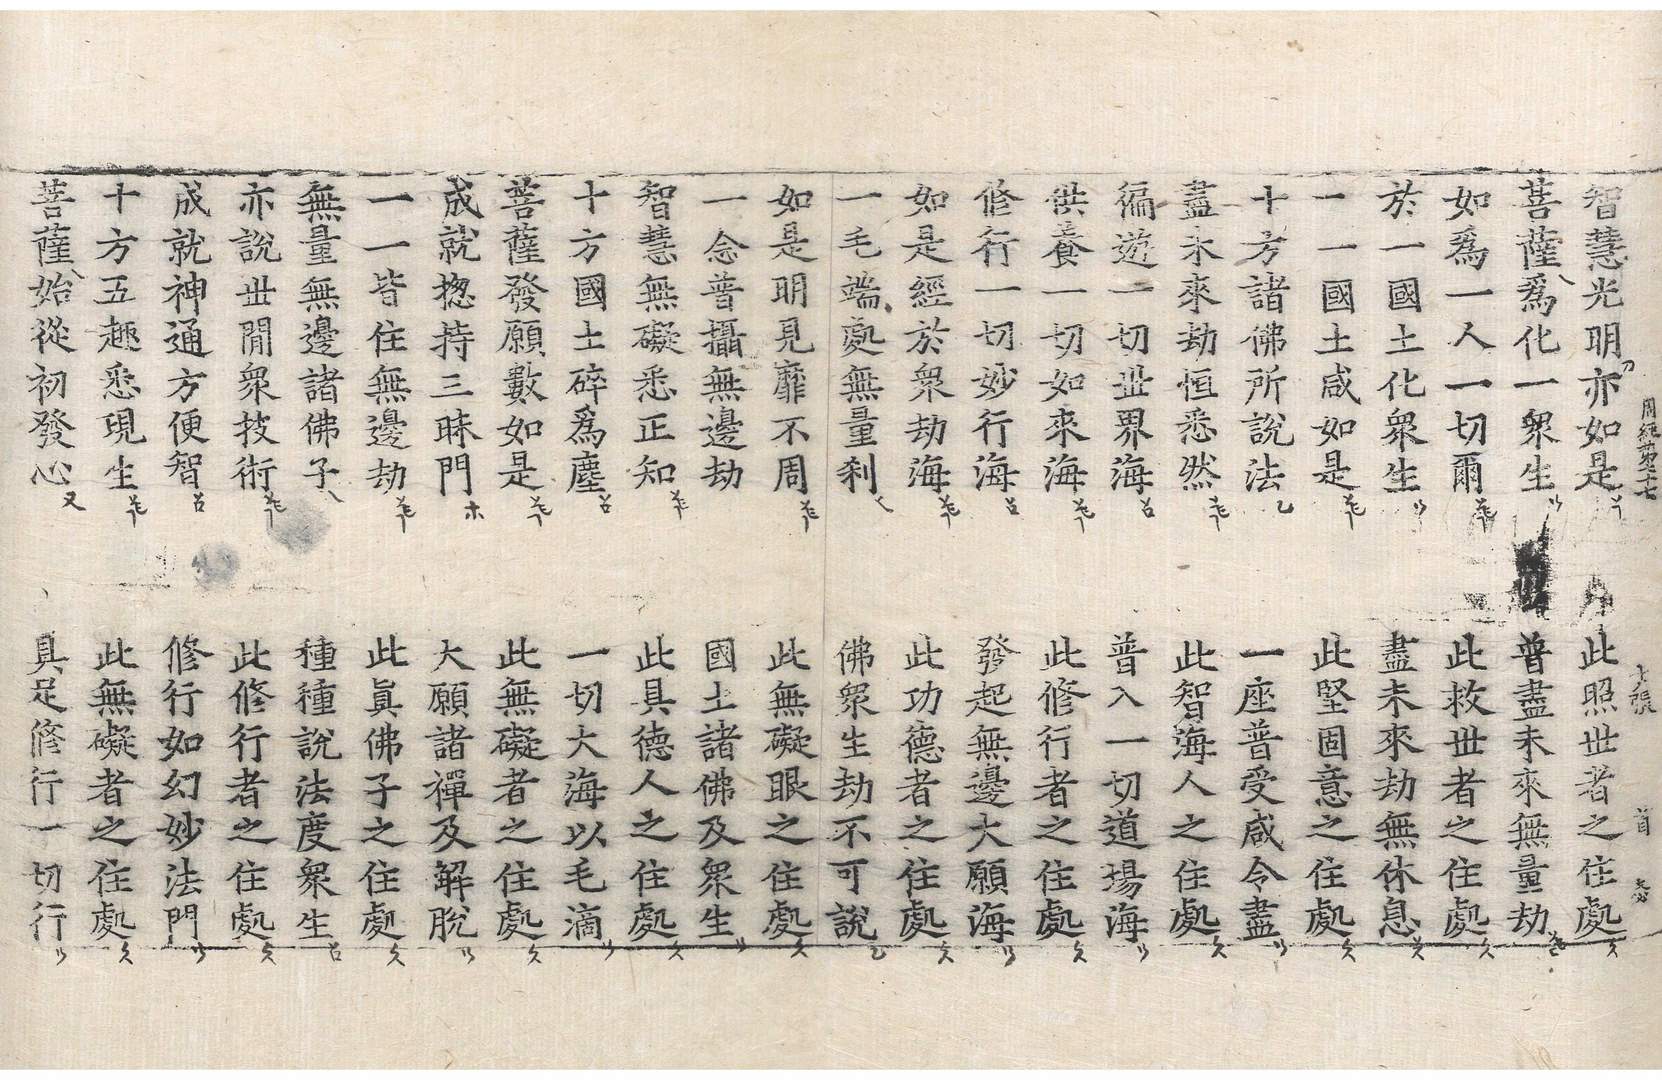 周經第七十七 七張
智慧光明亦如是 此照丗者之住處
菩薩爲化一衆生 普盡未來無量劫
如爲一人一切爾 此救丗者之住處
於一國土化衆生 盡未來劫無休息
一一國土咸如是 此堅固意之住處
十方諸佛所說法 一座普受咸令盡
盡未來劫恒悉然 此智海人之住處
徧遊一切丗界海 普入一切道場海
供養一切如來海 此修行者之住處
修行一切妙行海 發起無邊大願海
如是經於衆劫海 此功德者之住處
一毛端處無量刹 佛衆生劫不可說
如是明見靡不周 此無礙眼之住處
一念普攝無邊劫 國土諸佛及衆生
智慧無礙悉正知 此具德人之住處
十方國土碎爲塵 一切大海以毛滴
菩薩發願數如是 此無礙者之住處
成就揔持三昧門 大願諸禪及解脫
一一皆住無邊劫 此眞佛子之住處
無量無邊諸佛子 種種說法度衆生
亦說丗閒衆技術 此修行者之住處
成就神通方便智 修行如幻妙法門
十方五趣悉現生 此無礙者之住處
菩薩始從初發心 具足修行一切行